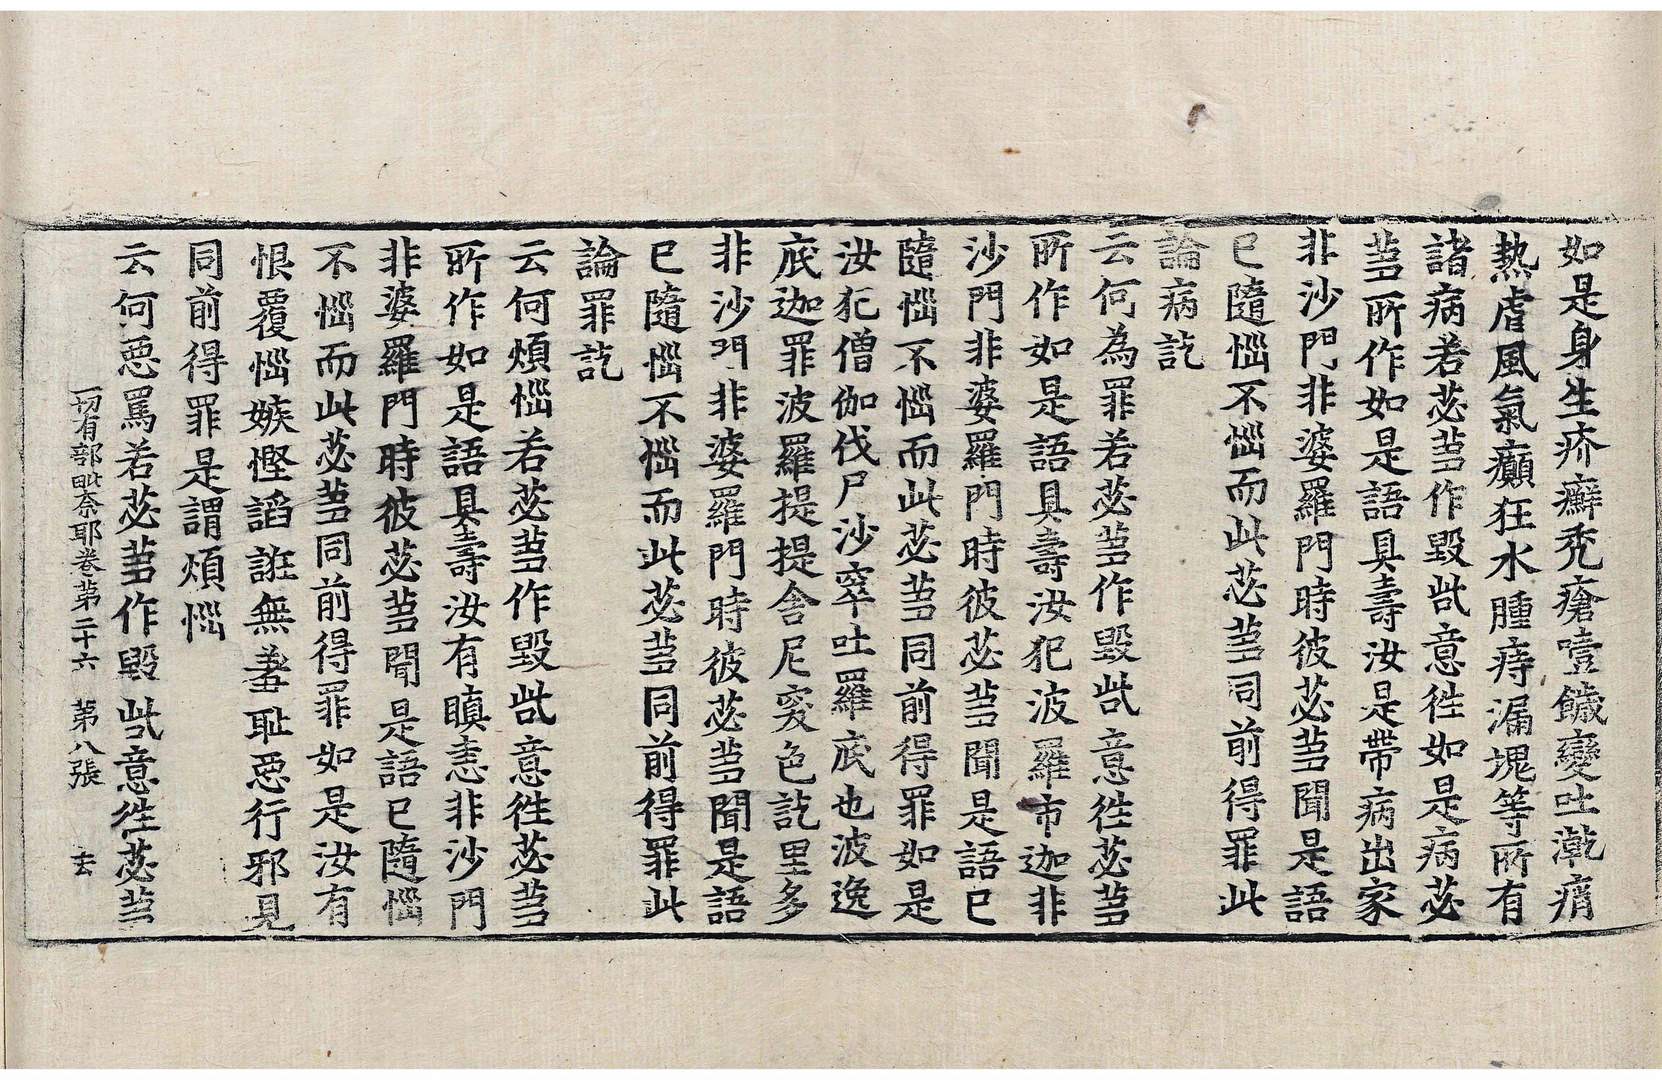 如是身生疥癬禿瘡噎饖變吐乾痟
熱瘧風氣癲狂水腫痔漏塊等所有
諸病若苾芻作毀呰意往如是病苾
芻所作如是語具壽汝是帶病出家
非沙門非婆羅門時彼苾芻聞是語
已隨惱不惱而此苾芻同前得罪此
論病訖
云何為罪若苾芻作毀呰意往苾芻
所作如是語具壽汝犯波羅市迦非
沙門非婆羅門時彼苾芻聞是語已
隨惱不惱而此苾芻同前得罪如是
汝犯僧伽伐尸沙窣吐羅底也波逸
底迦罪波羅提提舍尼突色訖里多
非沙門非婆羅門時彼苾芻聞是語
已隨惱不惱而此苾芻同前得罪此
論罪訖
云何煩惱若苾芻作毀呰意往苾芻
所作如是語具壽汝有瞋恚非沙門
非婆羅門時彼苾芻聞是語已隨惱
不惱而此苾芻同前得罪如是汝有
恨覆惱嫉慳諂誑無羞恥惡行邪見
同前得罪是謂煩惱
云何惡罵若苾芻作毀呰意往苾芻
一切有部毗奈耶卷第二十六　第八張　去